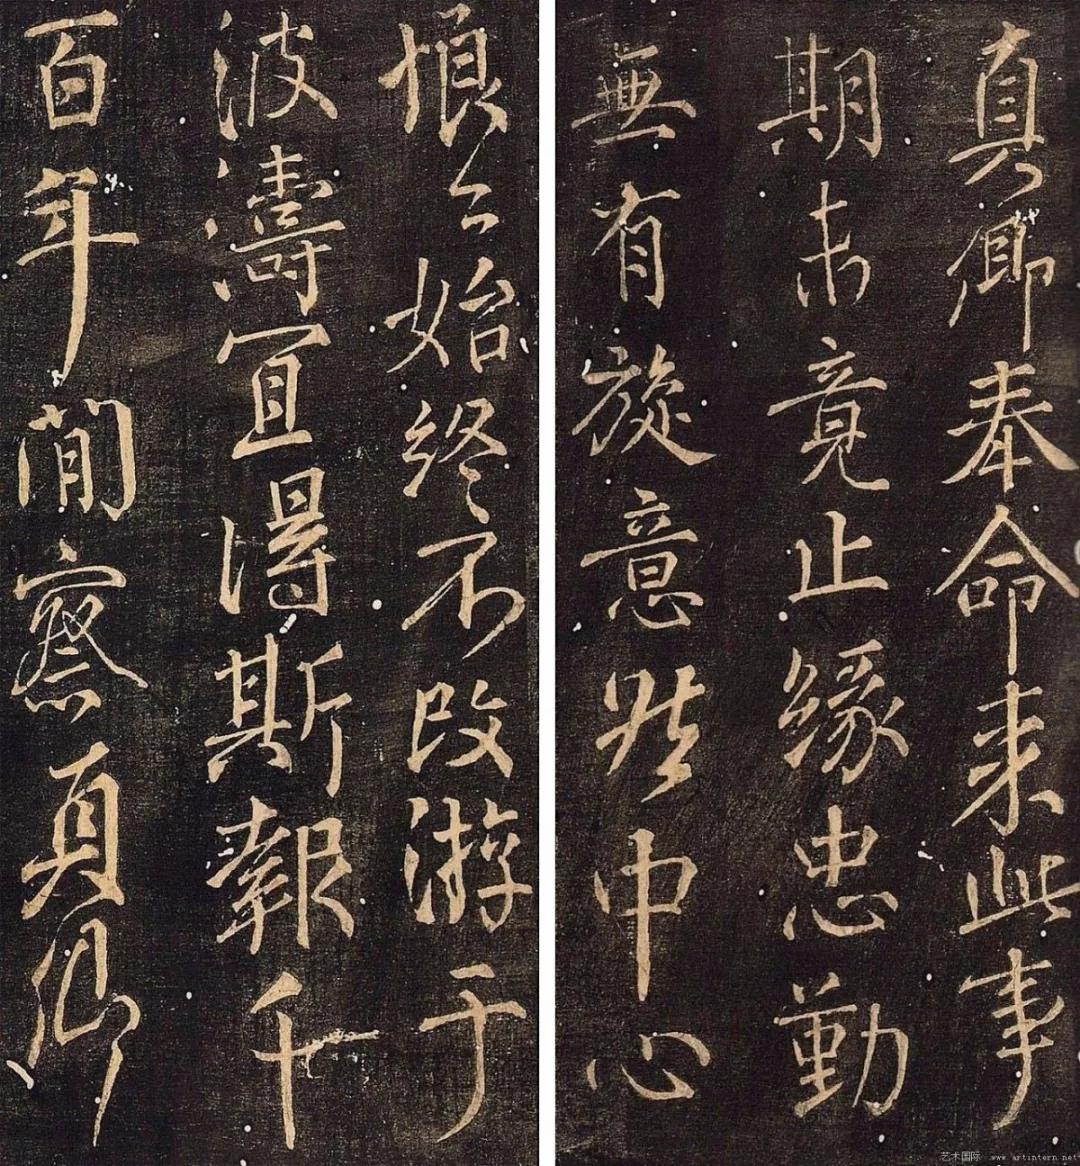 真卿奉命来此事
期未竟止緣忠勤
無有旋意然中心
恨々始終不改游于
波濤宜得斯報千
百年間察真卿
艺术国际 www.artintern.net